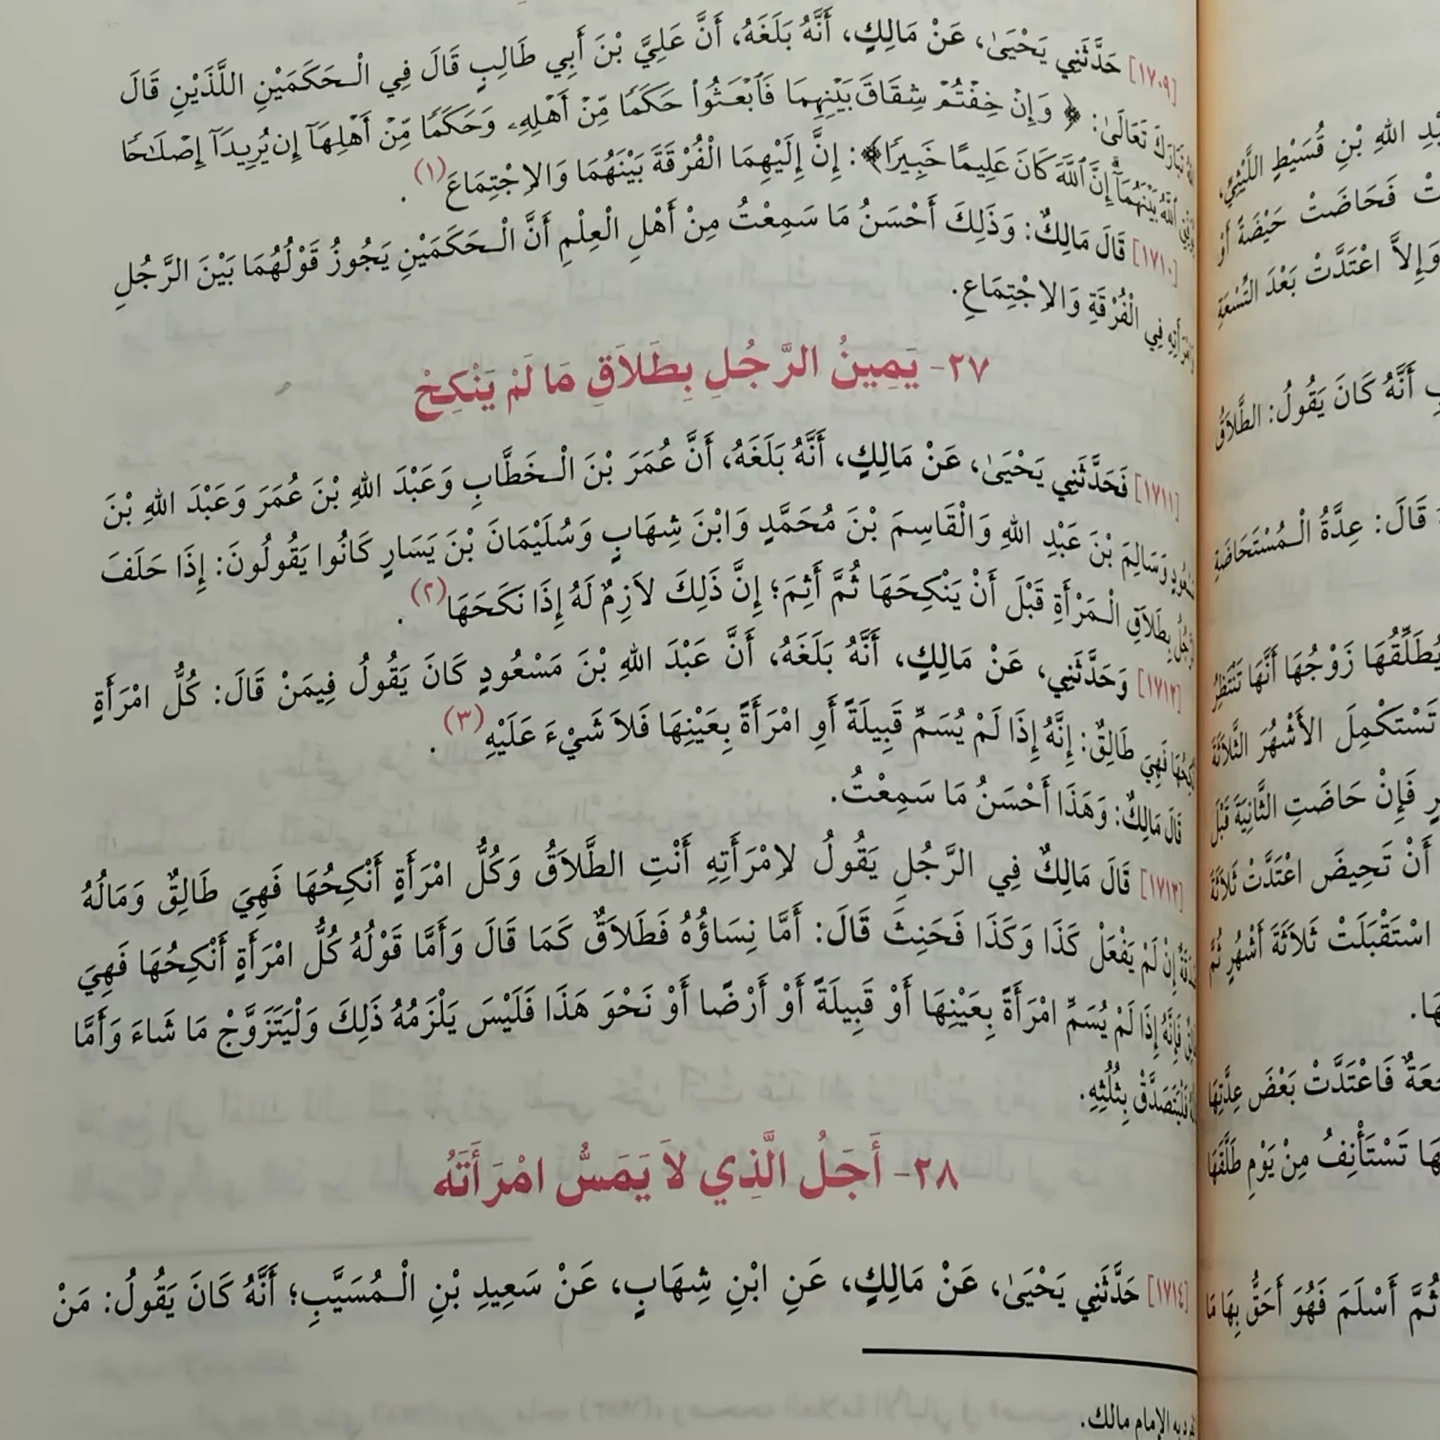 [١٧٠٩] حَدَّثَنِي يَحْيَىٰ، عَنْ مَالِكٍ، أَنَّهُ بَلَغَهُ، أَنَّ عَلِيَّ بْنَ أَبِي طَالِبٍ قَالَ فِي الْـحَكَمَيْنِ اللَّذَيْنِ قَالَ
تَبَارَكَ تَعَالَىٰ: ﴿ وَإِنْ خِفْتُمْ شِقَاقَ بَيْنِهِمَا فَٱبْعَثُوا۟ حَكَمًا مِّنْ أَهْلِهِۦ وَحَكَمًا مِّنْ أَهْلِهَآ إِن يُرِيدَآ إِصْلَـٰحًا
ٱللَّهُ بَيْنَهُمَآ إِنَّ ٱللَّهَ كَانَ عَلِيمًا خَبِيرًا﴾: إِنَّ إِلَيْهِمَا الْفُرْقَةَ بَيْنَهُمَا وَالاِجْتِمَاعَ(١).
[١٧١٠] قَالَ مَالِكٌ: وَذَلِكَ أَحْسَنُ مَا سَمِعْتُ مِنْ أَهْلِ الْعِلْمِ أَنَّ الْـحَكَمَيْنِ يَجُوزُ قَوْلُهُمَا بَيْنَ الرَّجُلِ
فِي الْفُرْقَةِ وَالاِجْتِمَاعِ.
٢٧- يَمِينُ الرَّجُلِ بِطَلاَقِ مَا لَمْ يَنْكِحْ
[١٧١١] فَحَدَّثَنِي يَحْيَىٰ، عَنْ مَالِكٍ، أَنَّهُ بَلَغَهُ، أَنَّ عُمَرَ بْنَ الْـخَطَّابِ وَعَبْدَ اللهِ بْنَ عُمَرَ وَعَبْدَ اللهِ بْنَ
وَسَالِمَ بْنَ عَبْدِ اللهِ وَالْقَاسِمَ بْنَ مُحَمَّدٍ وَابْنَ شِهَابٍ وَسُلَيْمَانَ بْنَ يَسَارٍ كَانُوا يَقُولُونَ: إِذَا حَلَفَ
بِطَلاَقِ الْـمَرْأَةِ قَبْلَ أَنْ يَنْكِحَهَا ثُمَّ أَثِمَ؛ إِنَّ ذَلِكَ لاَزِمٌ لَهُ إِذَا نَكَحَهَا(٢).
[١٧١٢] وَحَدَّثَنِي، عَنْ مَالِكٍ، أَنَّهُ بَلَغَهُ، أَنَّ عَبْدَ اللهِ بْنَ مَسْعُودٍ كَانَ يَقُولُ فِيمَنْ قَالَ: كُلُّ امْرَأَةٍ
فَهِيَ طَالِقٌ: إِنَّهُ إِذَا لَمْ يُسَمِّ قَبِيلَةً أَوِ امْرَأَةً بِعَيْنِهَا فَلاَ شَيْءَ عَلَيْهِ(٣).
قَالَ مَالِكٌ: وَهَذَا أَحْسَنُ مَا سَمِعْتُ.
[١٧١٣] قَالَ مَالِكٌ فِي الرَّجُلِ يَقُولُ لاِمْرَأَتِهِ أَنْتِ الطَّلاَقُ وَكُلُّ امْرَأَةٍ أَنْكِحُهَا فَهِيَ طَالِقٌ وَمَالُهُ
إِنْ لَمْ يَفْعَلْ كَذَا وَكَذَا فَحَنِثَ قَالَ: أَمَّا نِسَاؤُهُ فَطَلاَقٌ كَمَا قَالَ وَأَمَّا قَوْلُهُ كُلُّ امْرَأَةٍ أَنْكِحُهَا فَهِيَ
فَإِنَّهُ إِذَا لَمْ يُسَمِّ امْرَأَةً بِعَيْنِهَا أَوْ قَبِيلَةً أَوْ أَرْضًا أَوْ نَحْوَ هَذَا فَلَيْسَ يَلْزَمُهُ ذَلِكَ وَلْيَتَزَوَّجْ مَا شَاءَ وَأَمَّا
فَلْيَتَصَدَّقْ بِثُلُثِهِ.
٢٨- أَجَلُ الَّذِي لاَ يَمَسُّ امْرَأَتَهُ
[١٧١٤] حَدَّثَنِي يَحْيَىٰ، عَنْ مَالِكٍ، عَنِ ابْنِ شِهَابٍ، عَنْ سَعِيدِ بْنِ الْـمُسَيَّبِ؛ أَنَّهُ كَانَ يَقُولُ: مَنْ
به الإمام مالك.
اللهِ بْنِ قُسَيْطٍ اللَّيْثِيِّ،
فَحَاضَتْ حَيْضَةً أَوْ
وَإِلاَّ اعْتَدَّتْ بَعْدَ التِّسْعَةِ
أَنَّهُ كَانَ يَقُولُ: الطَّلاَقُ
قَالَ: عِدَّةُ الْـمُسْتَحَاضَةِ
يُطَلِّقُهَا زَوْجُهَا أَنَّهَا تَنْتَظِرُ
تَسْتَكْمِلَ الأَشْهُرَ الثَّلاَثَةَ
فَإِنْ حَاضَتِ الثَّانِيَةَ قَبْلَ
أَنْ تَحِيضَ اعْتَدَّتْ ثَلاَثَةَ
اسْتَقْبَلَتْ ثَلاَثَةَ أَشْهُرٍ ثُمَّ
فَاعْتَدَّتْ بَعْضَ عِدَّتِهَا
تَسْتَأْنِفُ مِنْ يَوْمِ طَلَّقَهَا
ثُمَّ أَسْلَمَ فَهُوَ أَحَقُّ بِهَا مَا